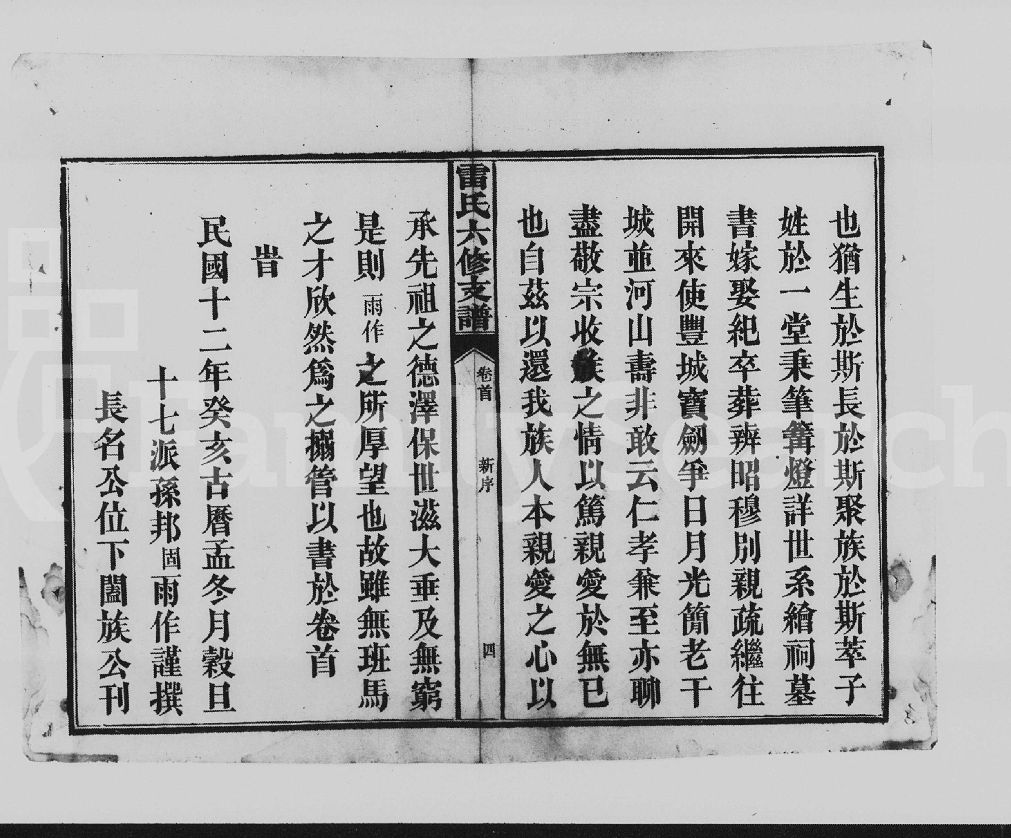 也猶生於斯長於斯聚族於斯萃子
姓於一堂秉筆篝燈詳世系繪祠墓
書嫁娶紀卒葬辨昭穆別親疏繼往
開來使豐城寶劍爭日月光簡老干
城並河山壽非敢云仁孝兼至亦聊
盡敬宗收族之情以篤親愛於無已
也自茲以還我族人本親愛之心以
雷氏六修支譜
卷首
新序
四
承先祖之德澤保世滋大垂及無窮
是則雨作之所厚望也故雖無班馬
之才欣然爲之搦管以書於卷首
旹
民國十二年癸亥古曆孟冬月穀旦
十七派孫邦固雨作謹撰
長名公位下闔族公刊
FamilySearch